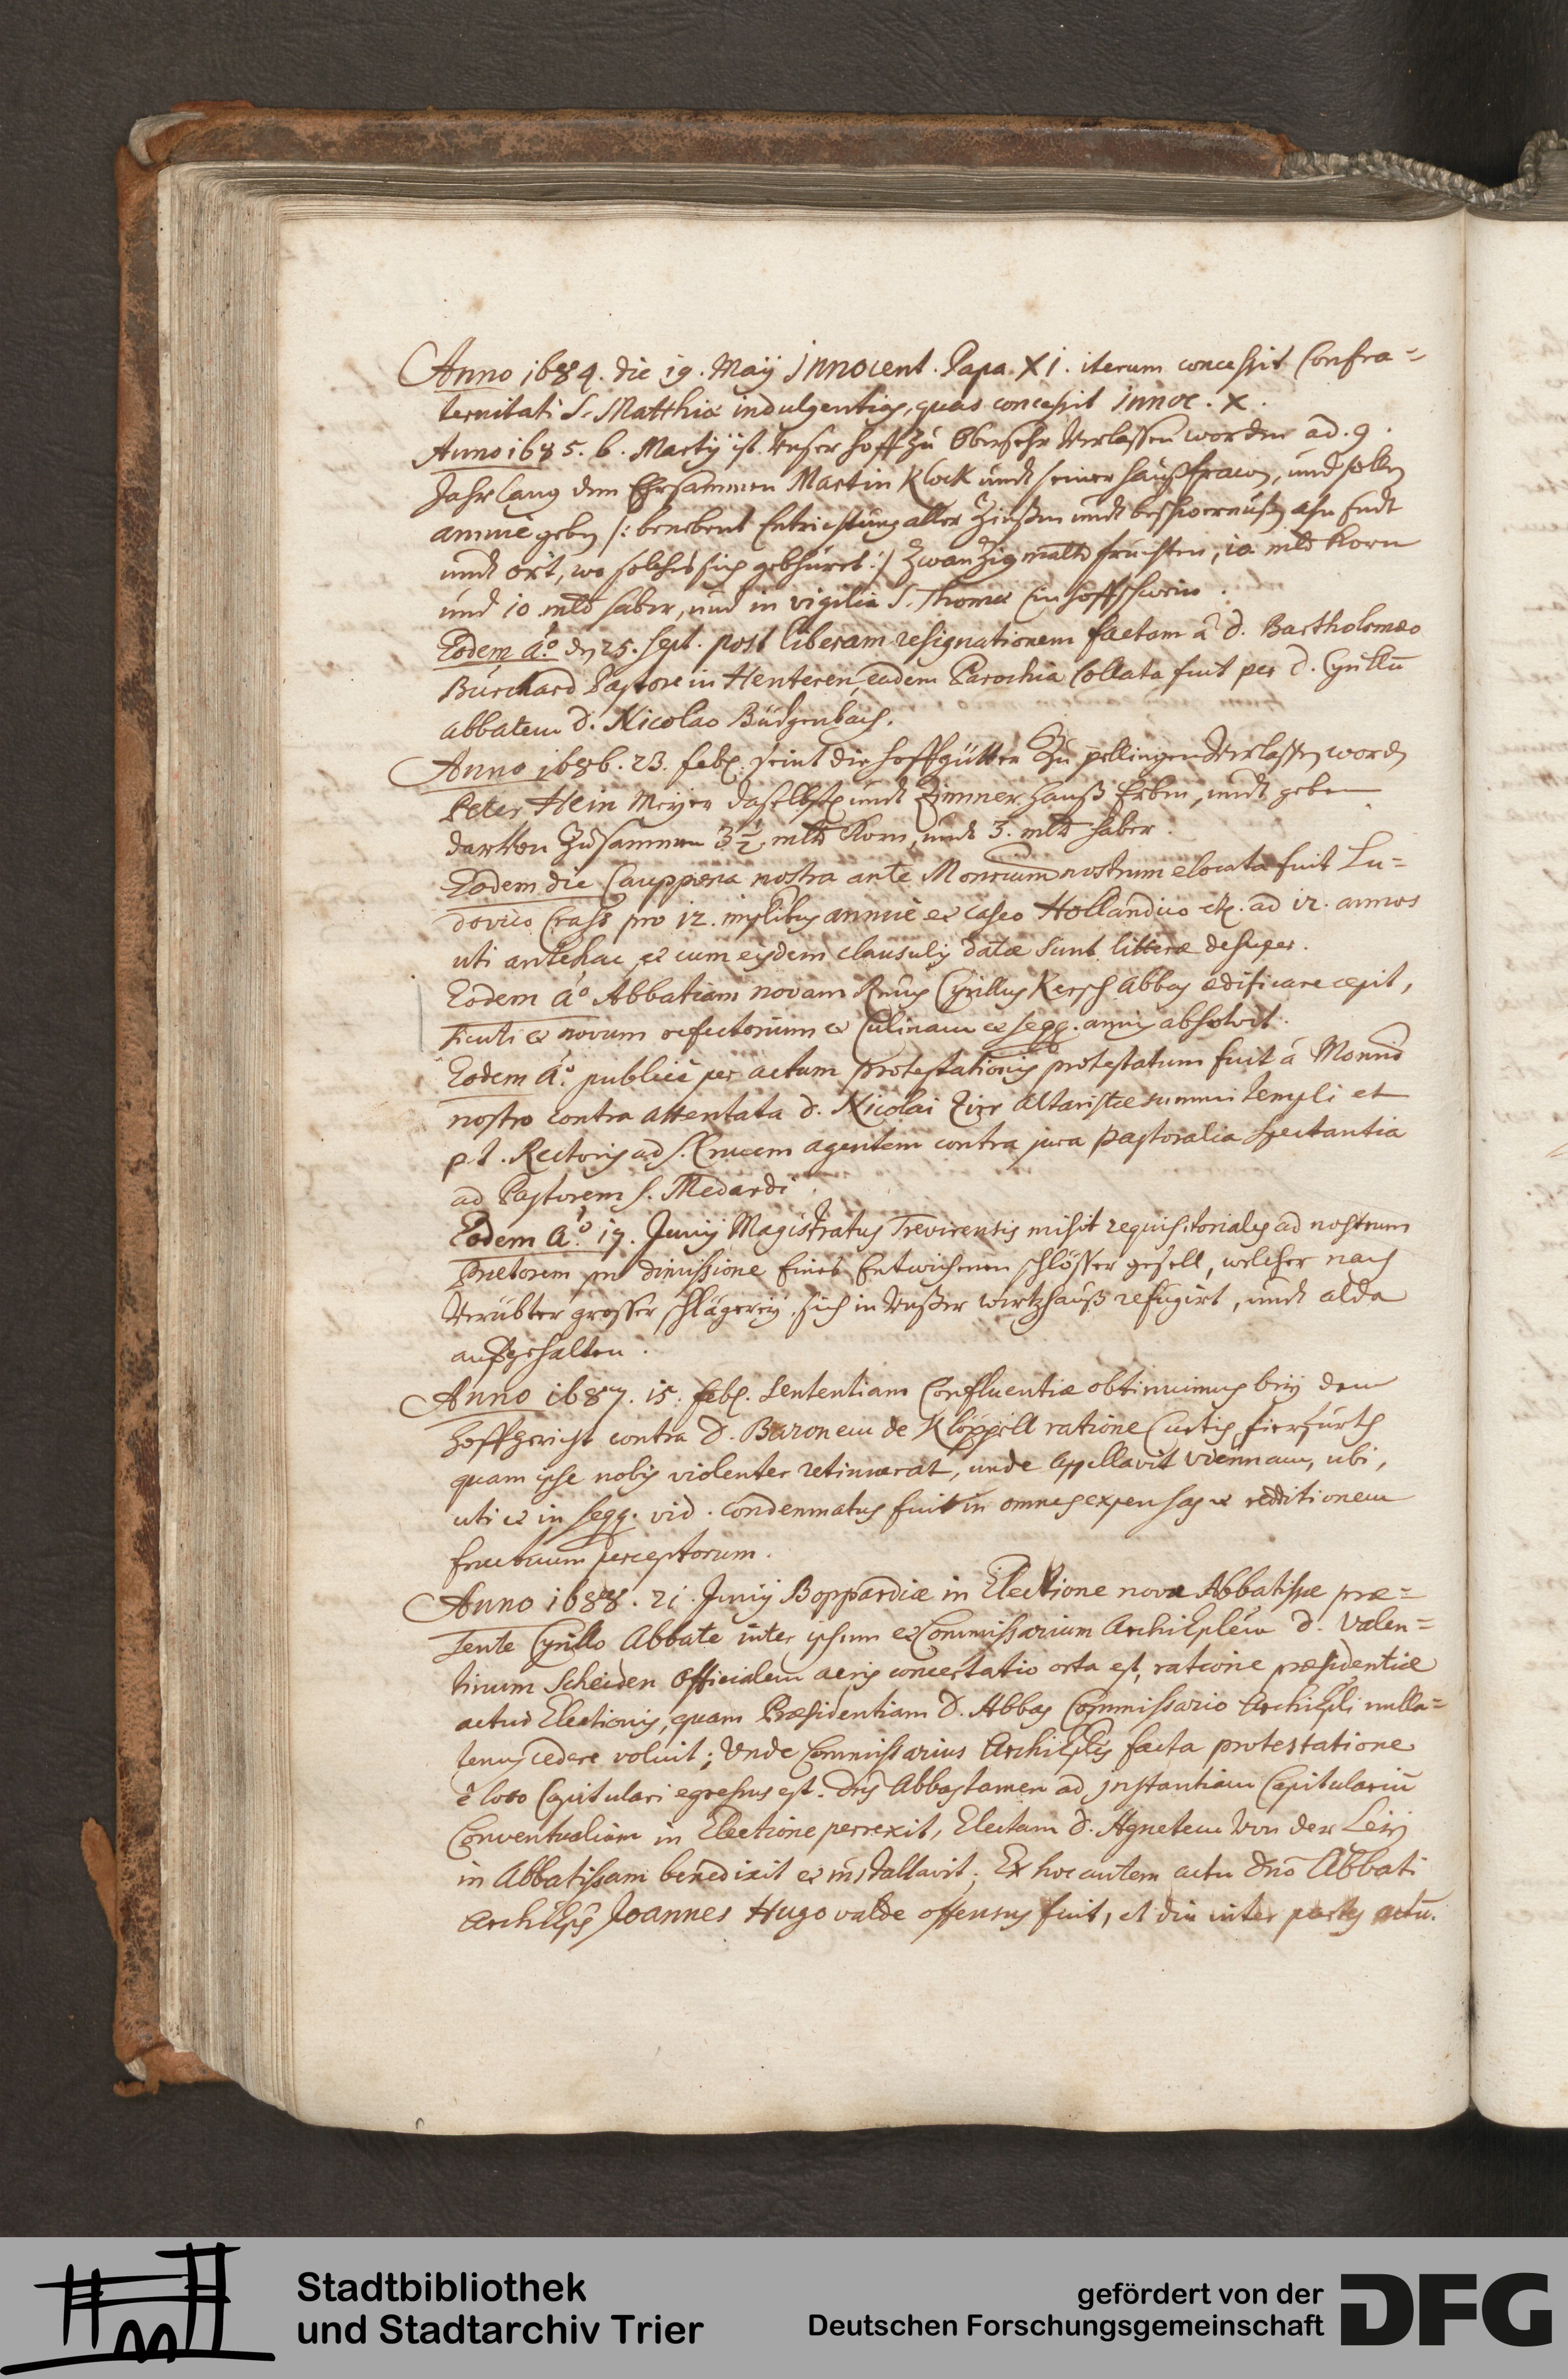 Anno 1684. die 19. Maÿ Innocent. Papa XI. iterum concessit Confra=
ternitati S. Matthiæ indulgentias, quas concessit Innoc. X.
Anno 1685. 6. Martÿ ist unser hoff zu Obersehr verlassen worden ad. 9.
Jahr lang dem Ehrsammen Martin Klock undt seiner haußfrawen, und sollen
annuè geben /: benebent Entrichtung aller Zinßen undt beschwernußen ahn Endt
undt ort, wo solches sich gebhüret :/ Zwanzig maltd fruchten, 10 mltd Korn
und 10 mltd haber, und in vigilia S. Thomæ ein hoffschwein.
Eodem Aº. den 25. Sept. post liberam resignationem factam à D. Bartholomæo
Burchard Pastore in Henteren, eadem Parochia Collata fuit per D. Cyrillū
abbatem D. Nicolao Büdgenbach.
Anno 1686. 23. feb. seint die hoffgütter zu pellingen verlassen worden
Peter Hein Meÿer daselbsten undt Zimmer hanß Erben, undt geben
darvon zusammen 3½ mltd Korn, undt 3. mltd haber.
Eodem die Cauppona nostra ante Monrium nostrum elocata fuit Lu=
dovico Crass pro 12. implibus annuè et caseo Hollandico etc. ad 12. annos
uti antehac, et cum eisdem clausulis datæ sunt litteræ desuper.
Eodem Aº Abbatiam novam Rmus Cyrillus Kersch Abbas ædificare cepit,
sicuti et novum refectorium et Culinam et seqq. annis absolvit.
Eodem Aº. publicè per actum protestationis protestatum fuit à Monrio
nostro contra attentata D. Nicolai Zirr altaristæ summi templi et
p.t. Rectoris ad S. Crucem agentem contra jura pastoralia spectantia
ad Pastorem S. Medardi.
Eodem Aº. 17. Junÿ Magistratus Trevirensis misit requisitoriales ad nostrum
Prætorem pro dimissione Eines Entwichenen schlösser gesell, welcher nach
verübter grosser schlägereÿ sich in unßer wirtzhauß refugirt, undt alda
auffgehalten.
Anno 1687. 15. feb. Sententiam Confluentiæ obtinuimus beÿ dem
hoffgericht contra D. Baronem de Klöppell ratione Curtis fierfürth
quam ipse nobis violenter retinuerat, unde appellavit Viennam, ubi,
uti et in seqq. vid. condemnatus fuit in omnes expensas et redditionem
fructuum perceptorum.
Anno 1688. 21. Junÿ Boppardiæ in Electione novæ Abbatissæ præ=
sente Cyrillo Abbate inter ipsum et Commissarium ArchiEplēm D. Valen=
tinum Scheiden Officialem acris concertatio orta est, ratione præsidentiæ
actus Electionis, quam Præsidentiam D. Abbas Commissario ArchiEpli nulla=
tenus cedere voluit; Unde Commissarius ArchiEplis facta protestatione
è loco Capitulari egressus est. Dns Abbas tamen ad instantiam Capitulariū
Conventualium in Electione perrexit, Electam D. Agnetem von der Leÿ
in Abbatissam benedixit et installavit. Ex hoc autem actu Dno Abbati
ArchiEps Joannes Hugo valde offensus fuit, et diu inter partes actū.
Stadtbibliothek
und Stadtarchiv Trier
gefördert von der
Deutschen Forschungsgemeinschaft
DFG